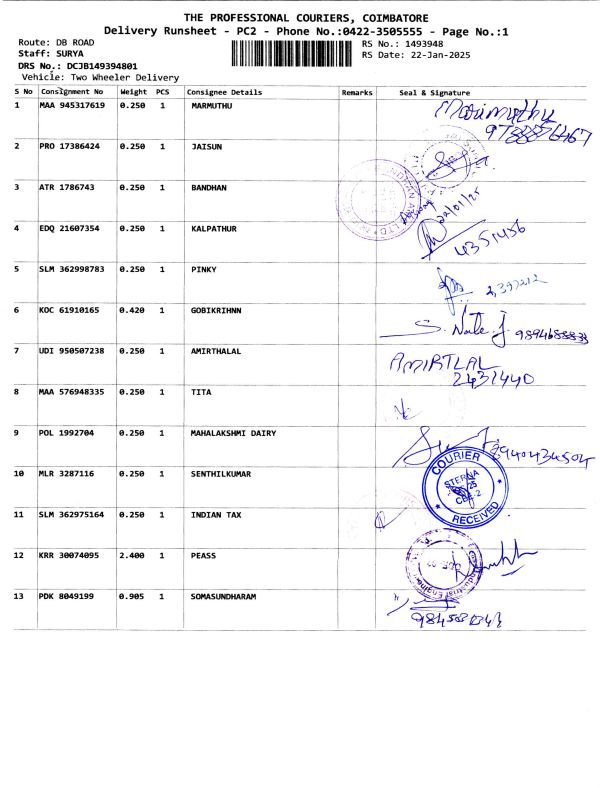 THE PROFESSIONAL COURIERS, COIMBATORE
Delivery Runsheet - PC2 - Phone No.:0422-3505555 - Page No.:1
Route: DB ROAD
RS No.: 1493948
Staff: SURYA
RS Date: 22-Jan-2025
DRS No.: DCJB149394801
Vehicle: Two Wheeler Delivery
S No Consignment No Weight PCS Consignee Details Remarks Seal & Signature
1 MAA 945317619 0.250 1 MARMUTHU Marimuthu
2 PRO 17386424 0.250 1 JAISUN
3 ATR 1786743 0.250 1 BANDHAN 22/01/25
4 EDQ 21607354 0.250 1 KALPATHUR 4351456
5 SLM 362998783 0.250 1 PINKY
6 KOC 61910165 0.420 1 GOBIKRIHNN
7 UDI 950507238 0.250 1 AMIRTHALAL AMIRTLAL
2431440
8 MAA 576948335 0.250 1 TITA
9 POL 1992704 0.250 1 MAHALAKSHMI DAIRY
10 MLR 3287116 0.250 1 SENTHILKUMAR COURIER
STERNA
RECEIVED
11 SLM 362975164 0.250 1 INDIAN TAX
12 KRR 30074095 2.400 1 PEASS
13 PDK 8049199 0.905 1 SOMASUNDHARAM